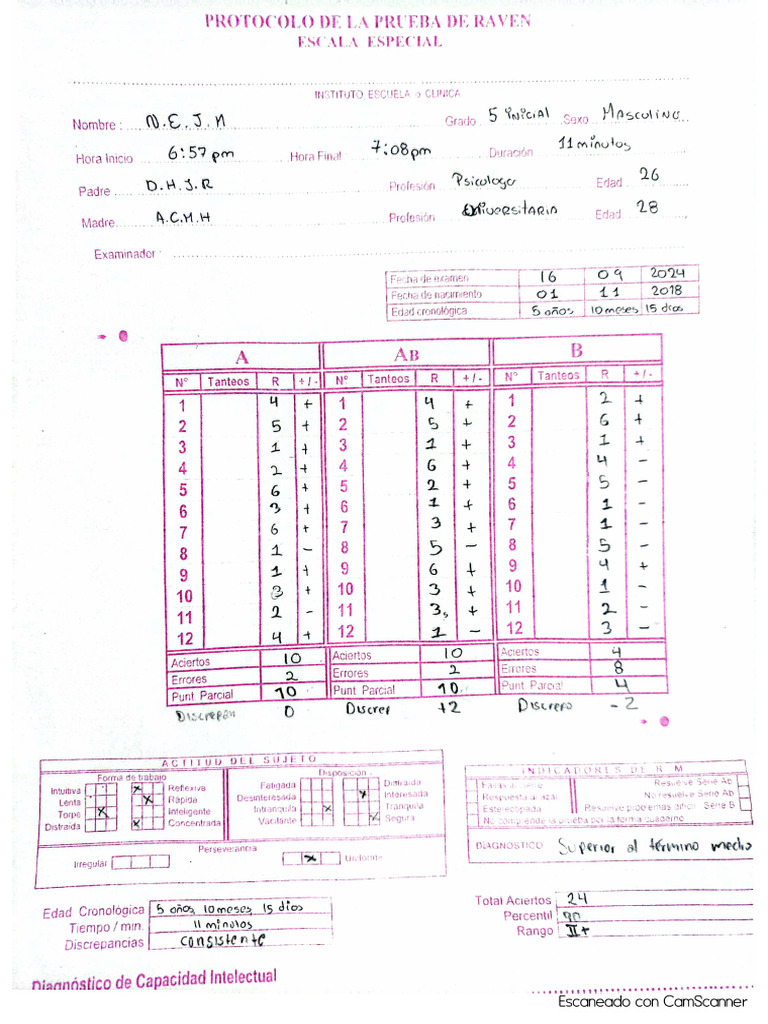 PROTOCOLO DE LA PRUEBA DE RAVEN
ESCALA ESPECIAL
INSTITUTO, ESCUELA o CLINICA
Nombre : N.E.J.N Grado 5 inicial Sexo Masculino
Hora Inicio 6:57 pm Hora Final 7:08pm Duración 11 minutos
Padre D.H.J.R Profesión Psicologo Edad 26
Madre A.C.M.H Profesión Universitaria Edad 28
Examinador :
Fecha de examen 16 09 2024
Fecha de nacimiento 01 11 2018
Edad cronológica 5 años 10 meses 15 dios
A AB B
N° Tanteos R +/- N° Tanteos R +/- N° Tanteos R +/-
1 4 + 1 4 + 1 2 +
2 5 + 2 5 + 2 6 +
3 1 + 3 1 + 3 1 +
4 2 + 4 6 + 4 4 -
5 6 + 5 2 + 5 5 -
6 3 + 6 1 + 6 1 -
7 6 + 7 3 + 7 1 -
8 1 - 8 5 - 8 5 -
9 1 + 9 6 + 9 4 +
10 3 + 10 3 + 10 1 -
11 2 - 11 3, + 11 2 -
12 4 + 12 1 - 12 3 -
Aciertos 10 Aciertos 10 Aciertos 4
Errores 2 Errores 2 Errores 8
Punt. Parcial 10 Punt. Parcial 10 Punt. Parcial 4
Discrepan 0 Discrep +2 Discrepo -2
ACTITUD DEL SUJETO
Forma de trabajo Disposición
Intuitiva x Reflexiva Fatigada Distraida
Lenta x Rápida Desinteresada x Interesada
Torpe x Inteligente Intranquila x Tranquila
Distraída x Concentrada Vacilante x Segura
Perseverancia
Irregular x Uniforme
INDICADORES DE R M
Fallas al serie Resuelve Serie Ab
Respuesta al azar No resuelve Serie Ab
Estereotipada Resuelve problemas difícil Serie B
No comprende la prueba por la forma cuaderno
DIAGNOSTICO Superior al término medio
Edad Cronológica 5 años, 10 meses, 15 dios
Tiempo / min. 11 minutos
Discrepancias consistente
Total Aciertos 24
Percentil 90
Rango II+
Diagnóstico de Capacidad Intelectual
Escaneado con CamScanner